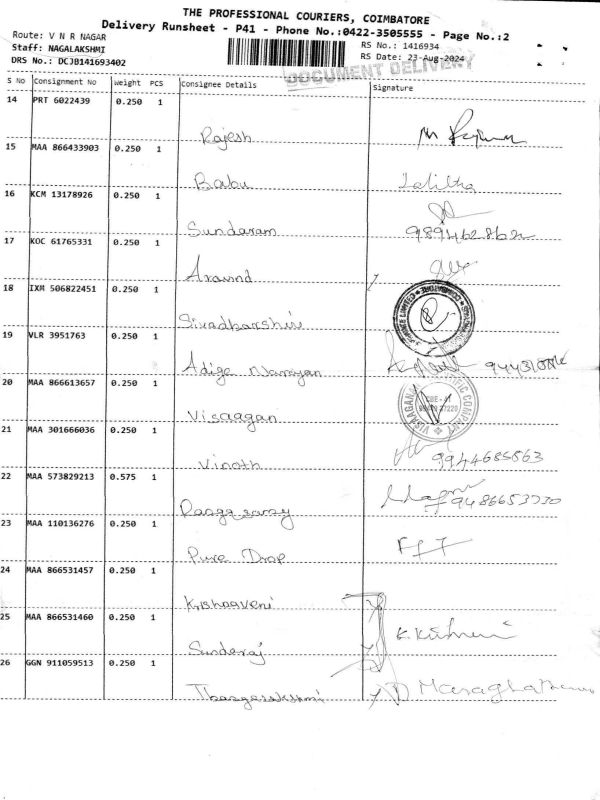 THE PROFESSIONAL COURIERS, COIMBATORE
Delivery Runsheet - P41 - Phone No.:0422-3505555 - Page No.:2
Route: V N R NAGAR
Staff: NAGALAKSHMI
DRS No.: DCJB141693402
RS No.: 1416934
RS Date: 23-Aug-2024
DOCUMENT DELIVERY
S No Consignment No Weight PCS Consignee Details Signature
14 PRT 6022439 0.250 1
Rajesh
15 MAA 866433903 0.250 1
Babu Lalitha
16 KCM 13178926 0.250 1
Sundaram
17 KOC 61765331 0.250 1
Aravind
18 IXM 506822451 0.250 1
Sivadharshini
19 VLR 3951763 0.250 1
Adige Narayan
20 MAA 866613657 0.250 1
Visaagan
21 MAA 301666036 0.250 1
Vinoth 9944685563
22 MAA 573829213 0.575 1
9486653730
23 MAA 110136276 0.250 1
Pure Drop
24 MAA 866531457 0.250 1
Krishaaveni
25 MAA 866531460 0.250 1
Sunderaj
26 GGN 911059513 0.250 1